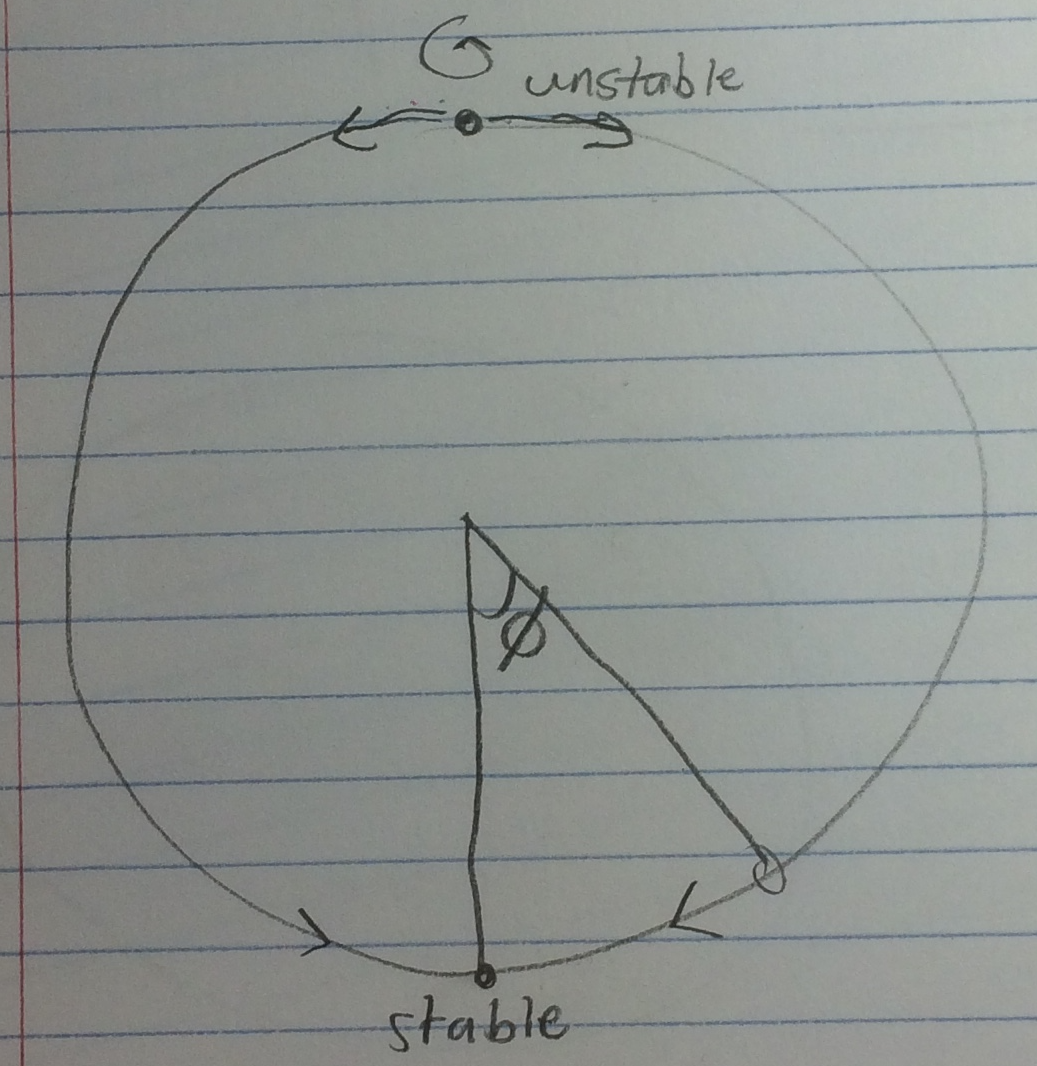 unstable
ϕ
stable